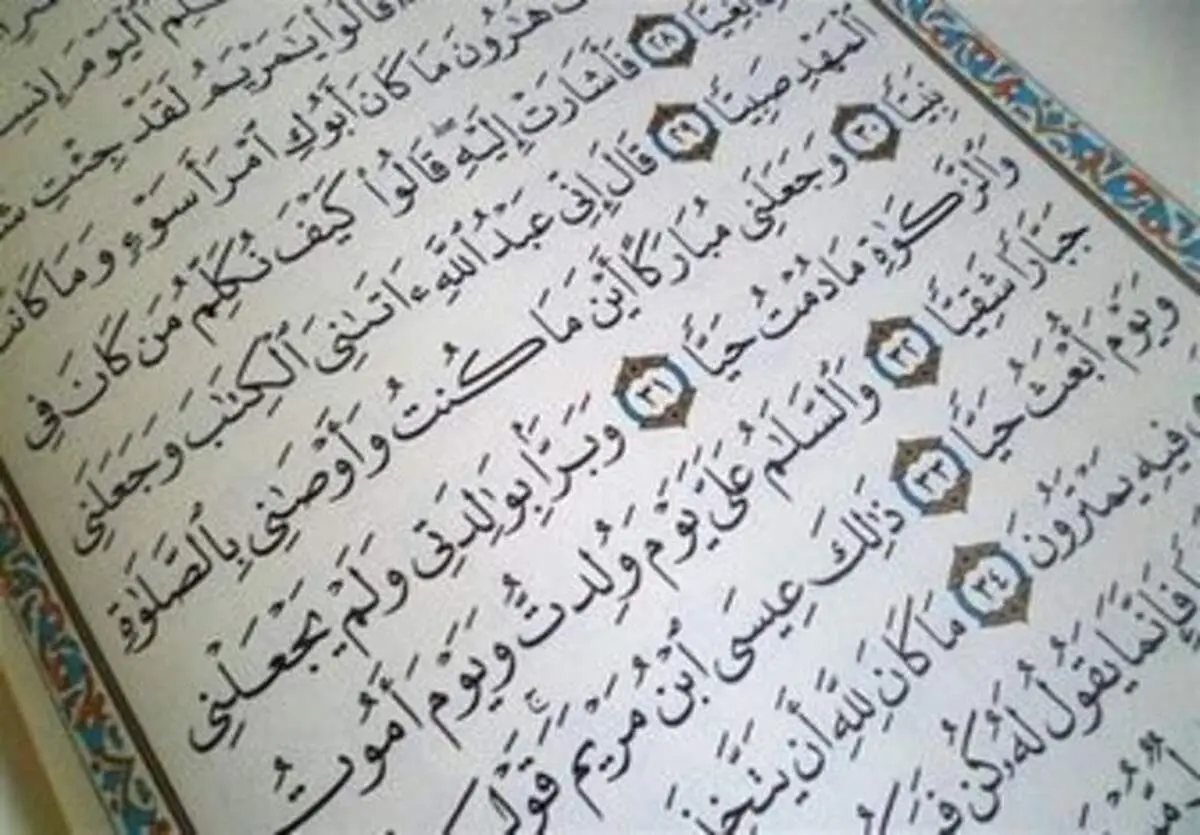 ٱلْيَوْمَ
قَالُوا۟ يَٰمَرْيَمُ لَقَدْ جِئْتِ
هَٰرُونَ مَا كَانَ أَبُوكِ ٱمْرَأَ سَوْءٍ وَمَا كَانَتْ
بَغِيًّا ٢٨ فَأَشَارَتْ إِلَيْهِ ۖ قَالُوا۟ كَيْفَ نُكَلِّمُ مَن كَانَ فِي
ٱلْمَهْدِ صَبِيًّا ٢٩ قَالَ إِنِّي عَبْدُ ٱللَّهِ ءَاتَىٰنِيَ ٱلْكِتَٰبَ وَجَعَلَنِي
نَبِيًّا ٣٠ وَجَعَلَنِي مُبَارَكًا أَيْنَ مَا كُنتُ وَأَوْصَٰنِي بِٱلصَّلَوٰةِ
وَٱلزَّكَوٰةِ مَا دُمْتُ حَيًّا ٣١ وَبَرًّۢا بِوَٰلِدَتِي وَلَمْ يَجْعَلْنِي
جَبَّارًا شَقِيًّا ٣٢ وَٱلسَّلَٰمُ عَلَيَّ يَوْمَ وُلِدتُّ وَيَوْمَ أَمُوتُ
وَيَوْمَ أُبْعَثُ حَيًّا ٣٣ ذَٰلِكَ عِيسَى ٱبْنُ مَرْيَمَ ۚ قَوْلَ
فِيهِ يَمْتَرُونَ ٣٤ مَا كَانَ لِلَّهِ أَن يَتَّخِذَ
فَإِنَّمَا يَقُولُ لَهُۥ كُن